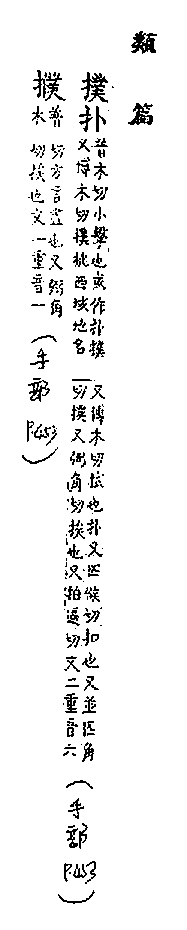 類篇
撲扑
普木切小擊也或作扑撲
又博木切撲桃西域地名
又博木切拭也扑又匹候切扣也又並匹角
切撲又弼角切挨也又拍逼切文二重音六
(手部 P453)
擈
普木切方言盡也又弼角
切挨也文一重音一
(手部 P453)